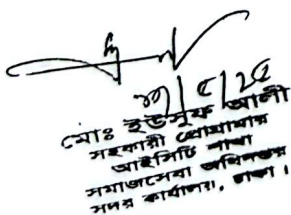 মোঃ ইউসুফ আলী
সহকারী প্রোগ্রামার
আইসিটি শাখা
সমাজসেবা অধিদপ্তর
সদর কার্যালয়, ঢাকা।